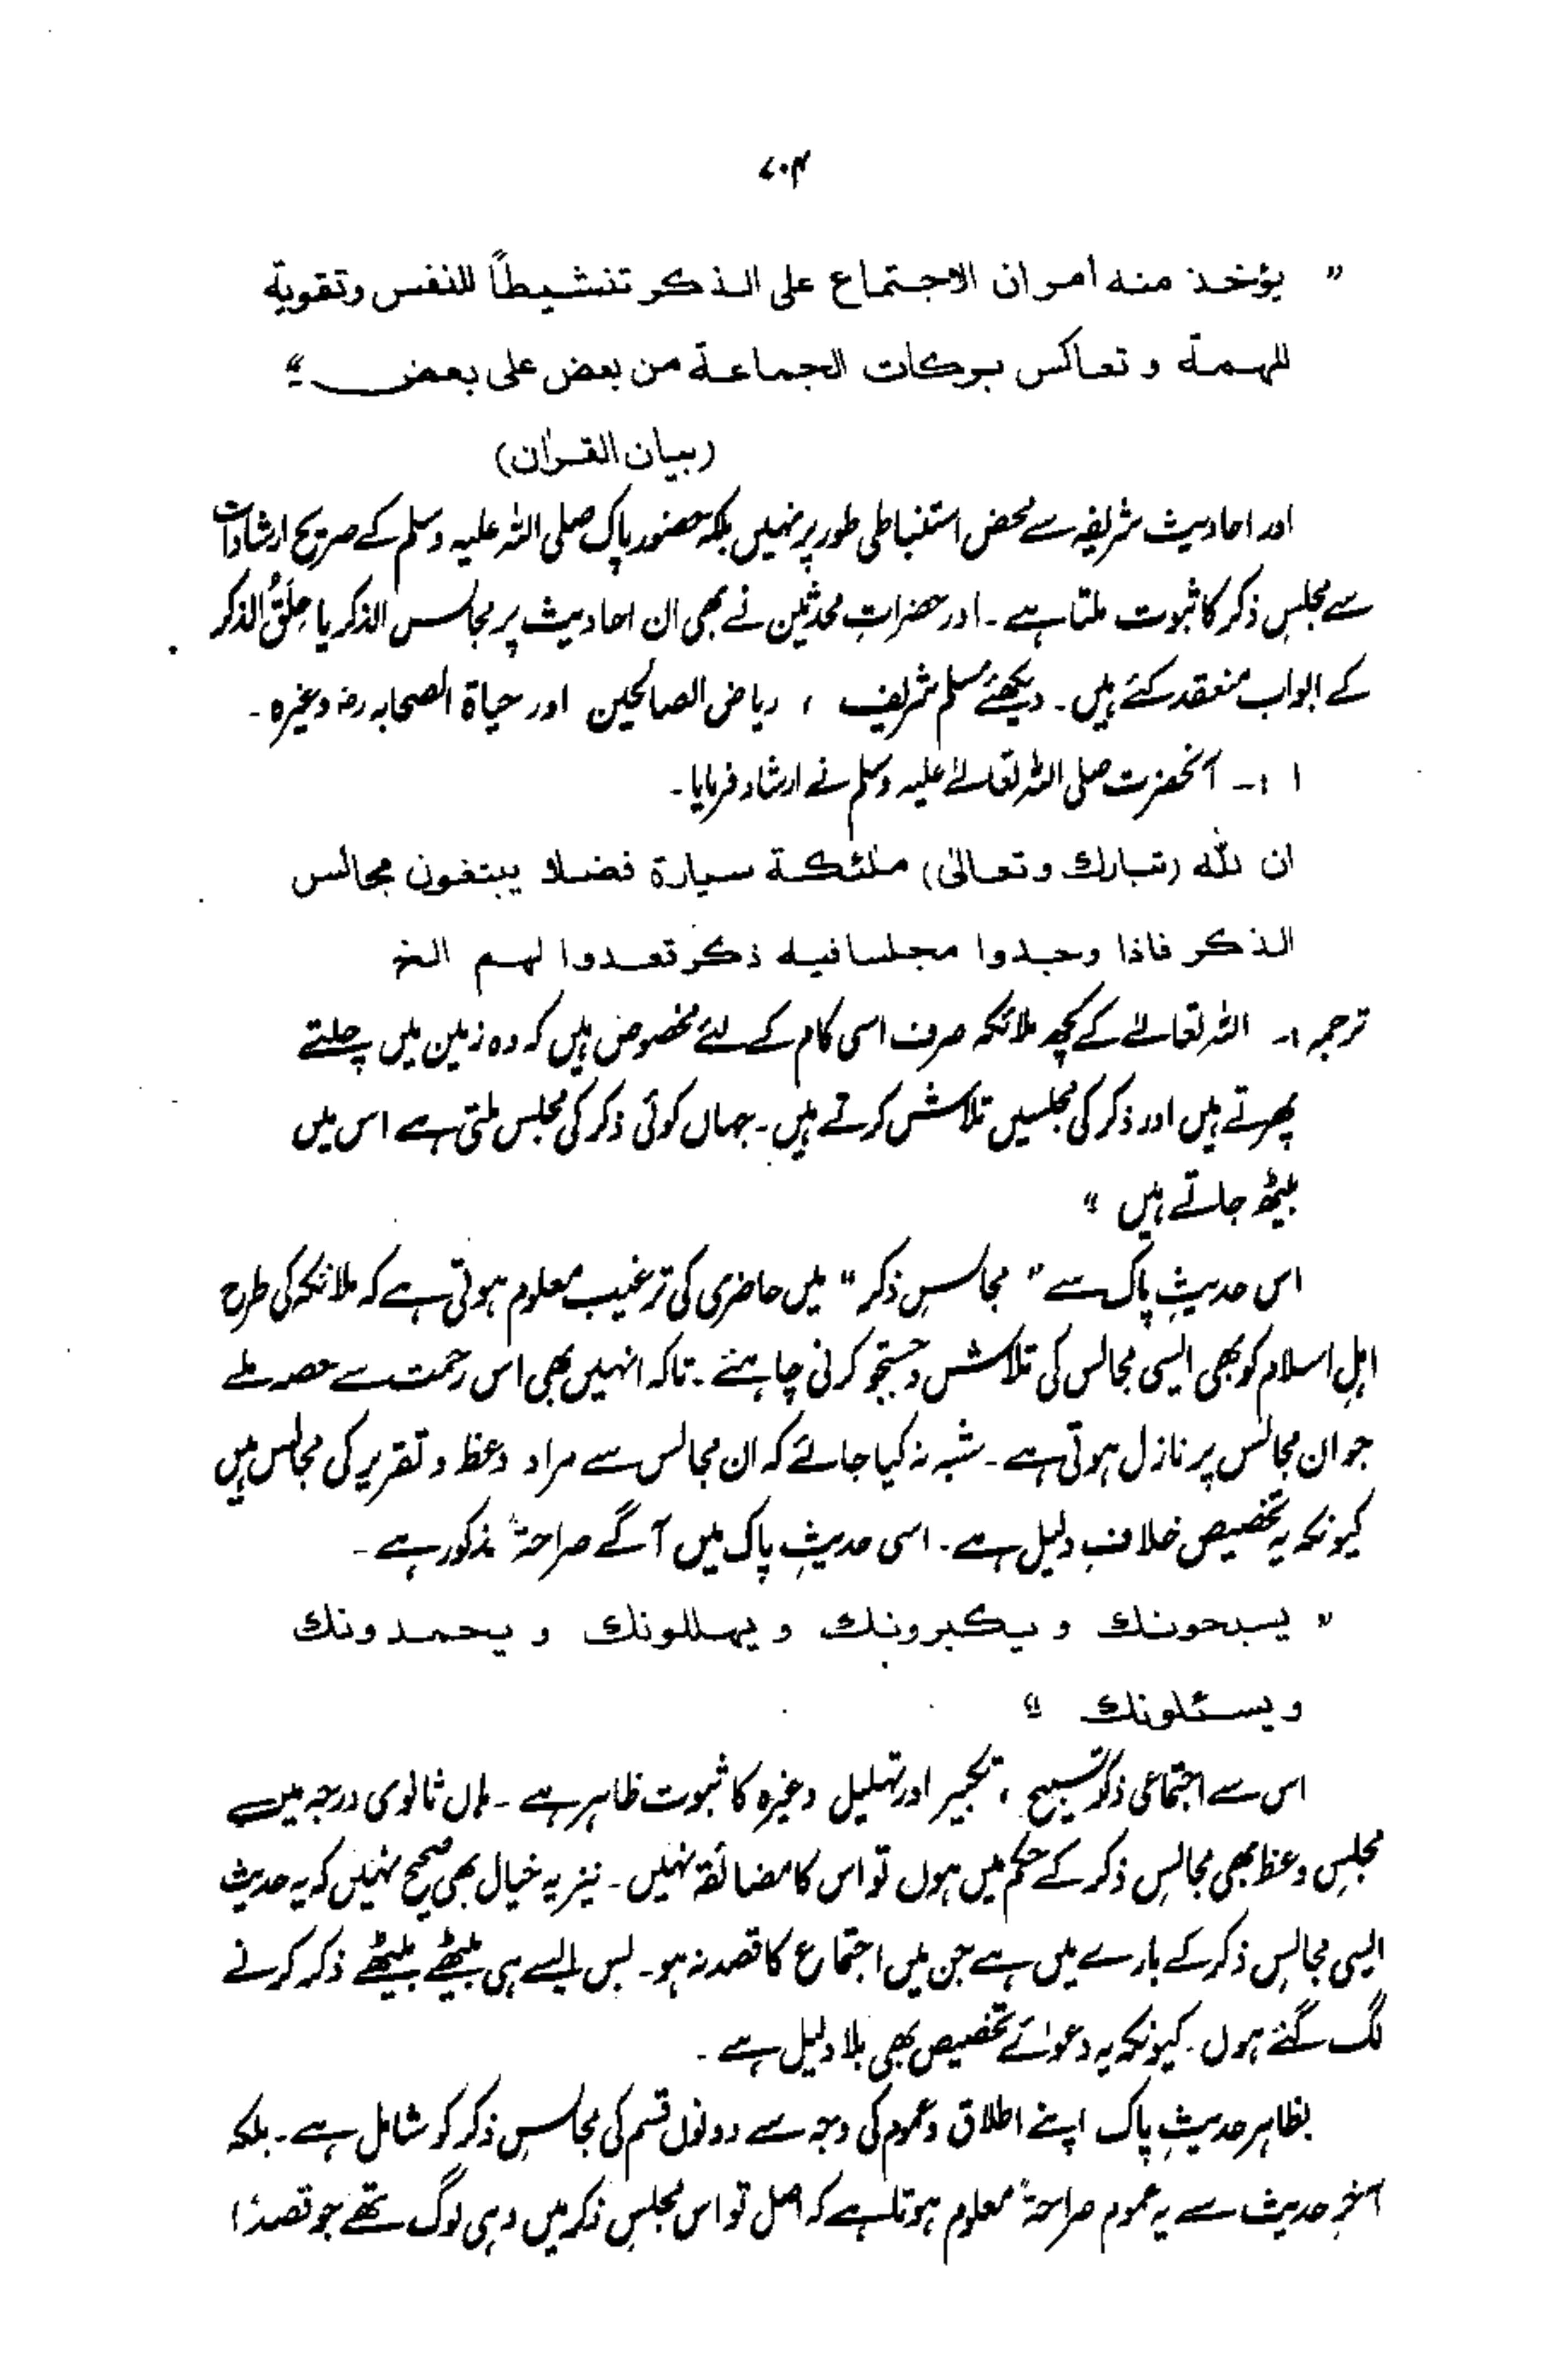 ۷۰۴
" يؤخذ منه امران الاجتماع على الذكر تنشيطاً للنفس وتقوية
للهمة و تعاكس بركات الجماعة من بعض على بعض "
(بیان القرآن)
اور احادیث شریفہ سے محض استنباطی طور پر نہیں بلکہ حضور پاک صلی اللہ علیہ وسلم کے صریح ارشادات
سے مجلسِ ذکر کا ثبوت ملتا ہے ۔ اور حضراتِ محدثین نے بھی ان احادیث پر مجالس الذکر یا حِلَقُ الذکر
کے ابواب منعقد کئے ہیں ۔ دیکھئے مسلم شریف ، ریاض الصالحین اور حیاة الصحابہ رضؓ وغیرہ ۔
۱ :۔ آنحضرت صلی اللہ تعالےٰ علیہ وسلم نے ارشاد فرمایا ۔
ان لله (تبارك و تعالیٰ) ملئكة سيارة فضلا يبتغون مجالس
الذكر فاذا وجدوا مجلسا فيه ذكر قعدوا لهم الخ
ترجمہ :۔ اللہ تعالےٰ کے کچھ ملائکہ صرف اسی کام کے لئے مخصوص ہیں کہ وہ زمین میں چلتے
پھرتے ہیں اور ذکر کی مجلسیں تلاش کرتے ہیں ۔ جہاں کوئی ذکر کی مجلس ملتی ہے اس میں
بیٹھ جاتے ہیں "
اس حدیثِ پاک سے " مجالسِ ذکر " میں حاضری کی ترغیب معلوم ہوتی ہے کہ ملائکہ کی طرح
اہلِ اسلام کو بھی ایسی مجالس کی تلاش و جستجو کرنی چاہئے ۔ تاکہ انہیں بھی اس رحمت سے حصہ ملے
جو ان مجالس پر نازل ہوتی ہے ۔ شبہ نہ کیا جائے کہ ان مجالس سے مراد وعظ و تقریر کی مجالس ہیں
کیونکہ یہ تخصیص خلافِ دلیل ہے ۔ اسی حدیثِ پاک میں آگے صراحۃً مذکور ہے ۔
" يسبحونك و يكبرونك و يهللونك و يحمدونك
و يسئلونك "
اس سے اجتماعی ذکر تسبیح ، تکبیر اور تہلیل وغیرہ کا ثبوت ظاہر ہے ۔ ہاں ثانوی درجہ میں
مجلسِ وعظ بھی مجالسِ ذکر کے حکم میں ہوں تو اس کا مضائقہ نہیں ۔ نیز یہ خیال بھی صحیح نہیں کہ یہ حدیث
ایسی مجالسِ ذکر کے بارے میں ہے جن میں اجتماع کا قصد نہ ہو ۔ بس ایسے ہی بیٹھے بیٹھے ذکر کرنے
لگ گئے ہوں ۔ کیونکہ یہ دعوائے تخصیص بھی بلا دلیل ہے ۔
بظاہر حدیثِ پاک اپنے اطلاق و عموم کی وجہ سے دونوں قسم کی مجالسِ ذکر کو شامل ہے ۔ بلکہ
آخرِ حدیث سے یہ عموم صراحۃً معلوم ہوتا ہے کہ اصل تو اس مجلسِ ذکر میں وہی لوگ تھے جو قصداً